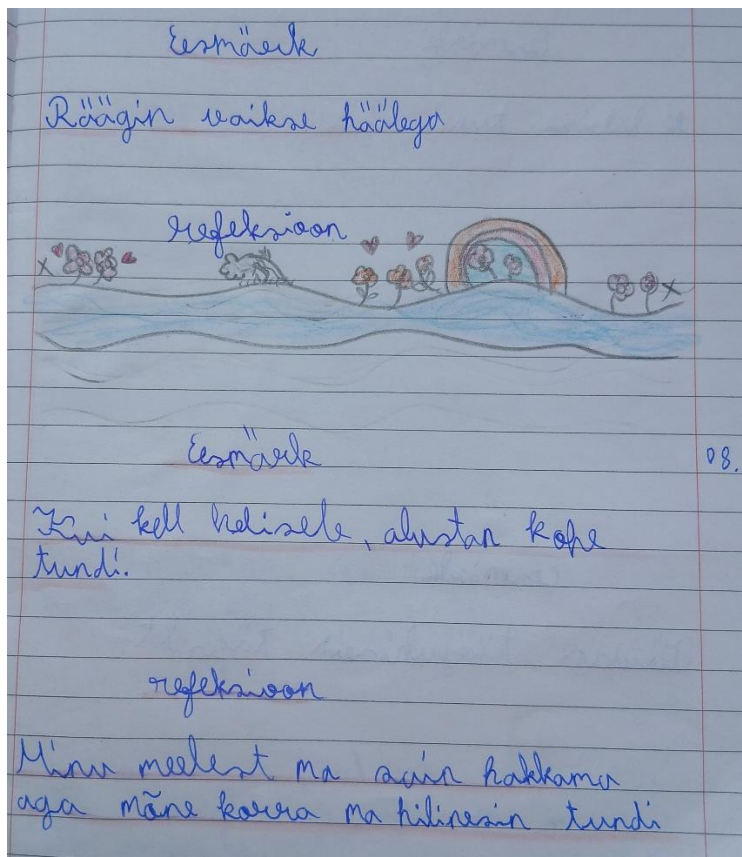 Eesmärk
Räägin vaikse häälega
refeksioon
Eesmärk
08.
Kui kell heliseb, alustan kohe
tundi.
refeksioon
Minu meelest ma sain hakkama
aga mõne korra ma hilinesin tundi